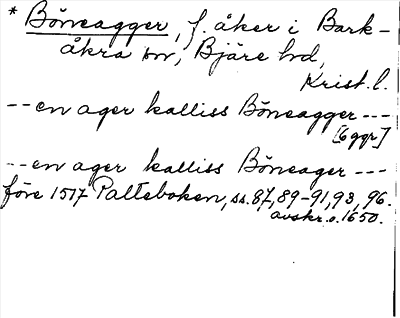 * Böneagger, f. åker i Bark-
åkra sn, Bjäre hd,
Krist. l.
-- en ager kalliss Böneagger ---
[6 ggr]
-- en ager kalliss Böneager ---
före 1517 Palteboken, ss. 87, 89-91, 93, 96.
avskr. o. 1650.